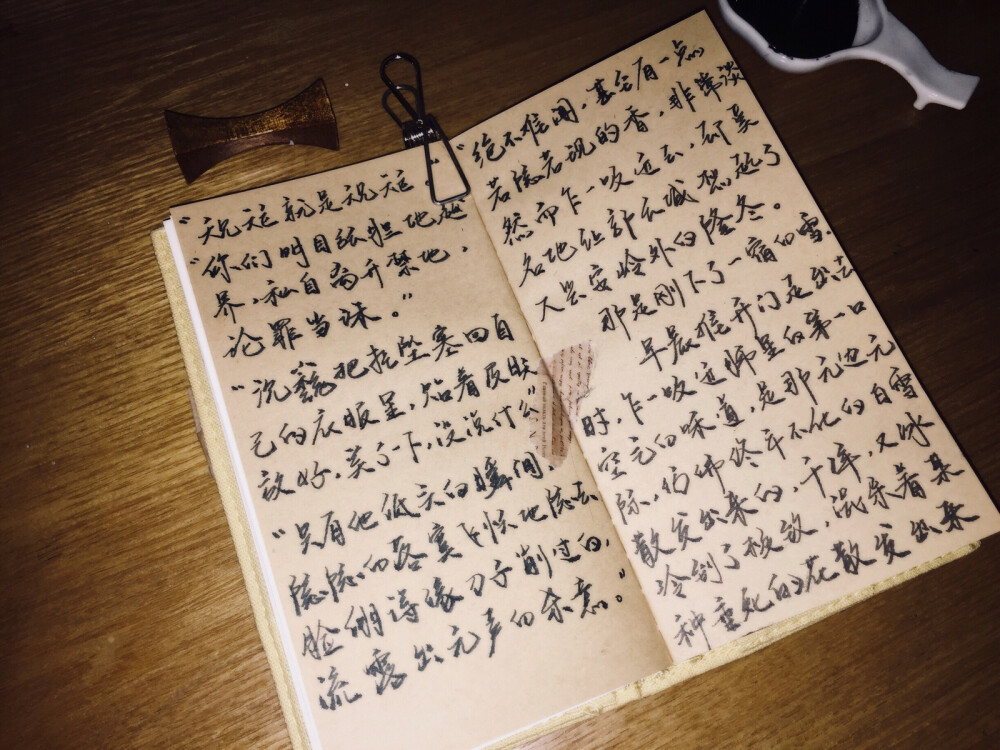 “规矩就是规矩。”
“你们明目张胆地越
界，私自离开禁地，
论罪当诛。”
“沈巍把挂坠塞回自
己的衣服里，贴着皮肤
放好，笑了一下，没说什么”
“只有他低头的瞬间，
隐隐的落寞飞快地隐去
脸绷得像刀子削过的，
流露出无声的杀意。”
“绝不难闻，甚至有一点
若隐若现的香，非常淡
然而乍一吸进去，却莫
名地让郭长城想起了
大兴安岭外的隆冬。
那是刚下了一宿的雪，
早晨推开门走出去
时，乍一吸进肺里的第一口
空气的味道，是那无边无
际，仿佛终年不化的白雪
散发出来的，干净，又冰
冷到了极致，混杂着某
种垂死的花散发出来